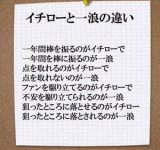 イチローと一浪の違い
一年間棒を振るのがイチローで
一年間を棒に振るのが一浪
点を取れるのがイチローで
点を取れないのが一浪
ファンを駆り立てるのがイチローで
不安を駆り立てられるのが一浪
狙ったところに落とせるのがイチローで
狙ったところに落とされるのが一浪